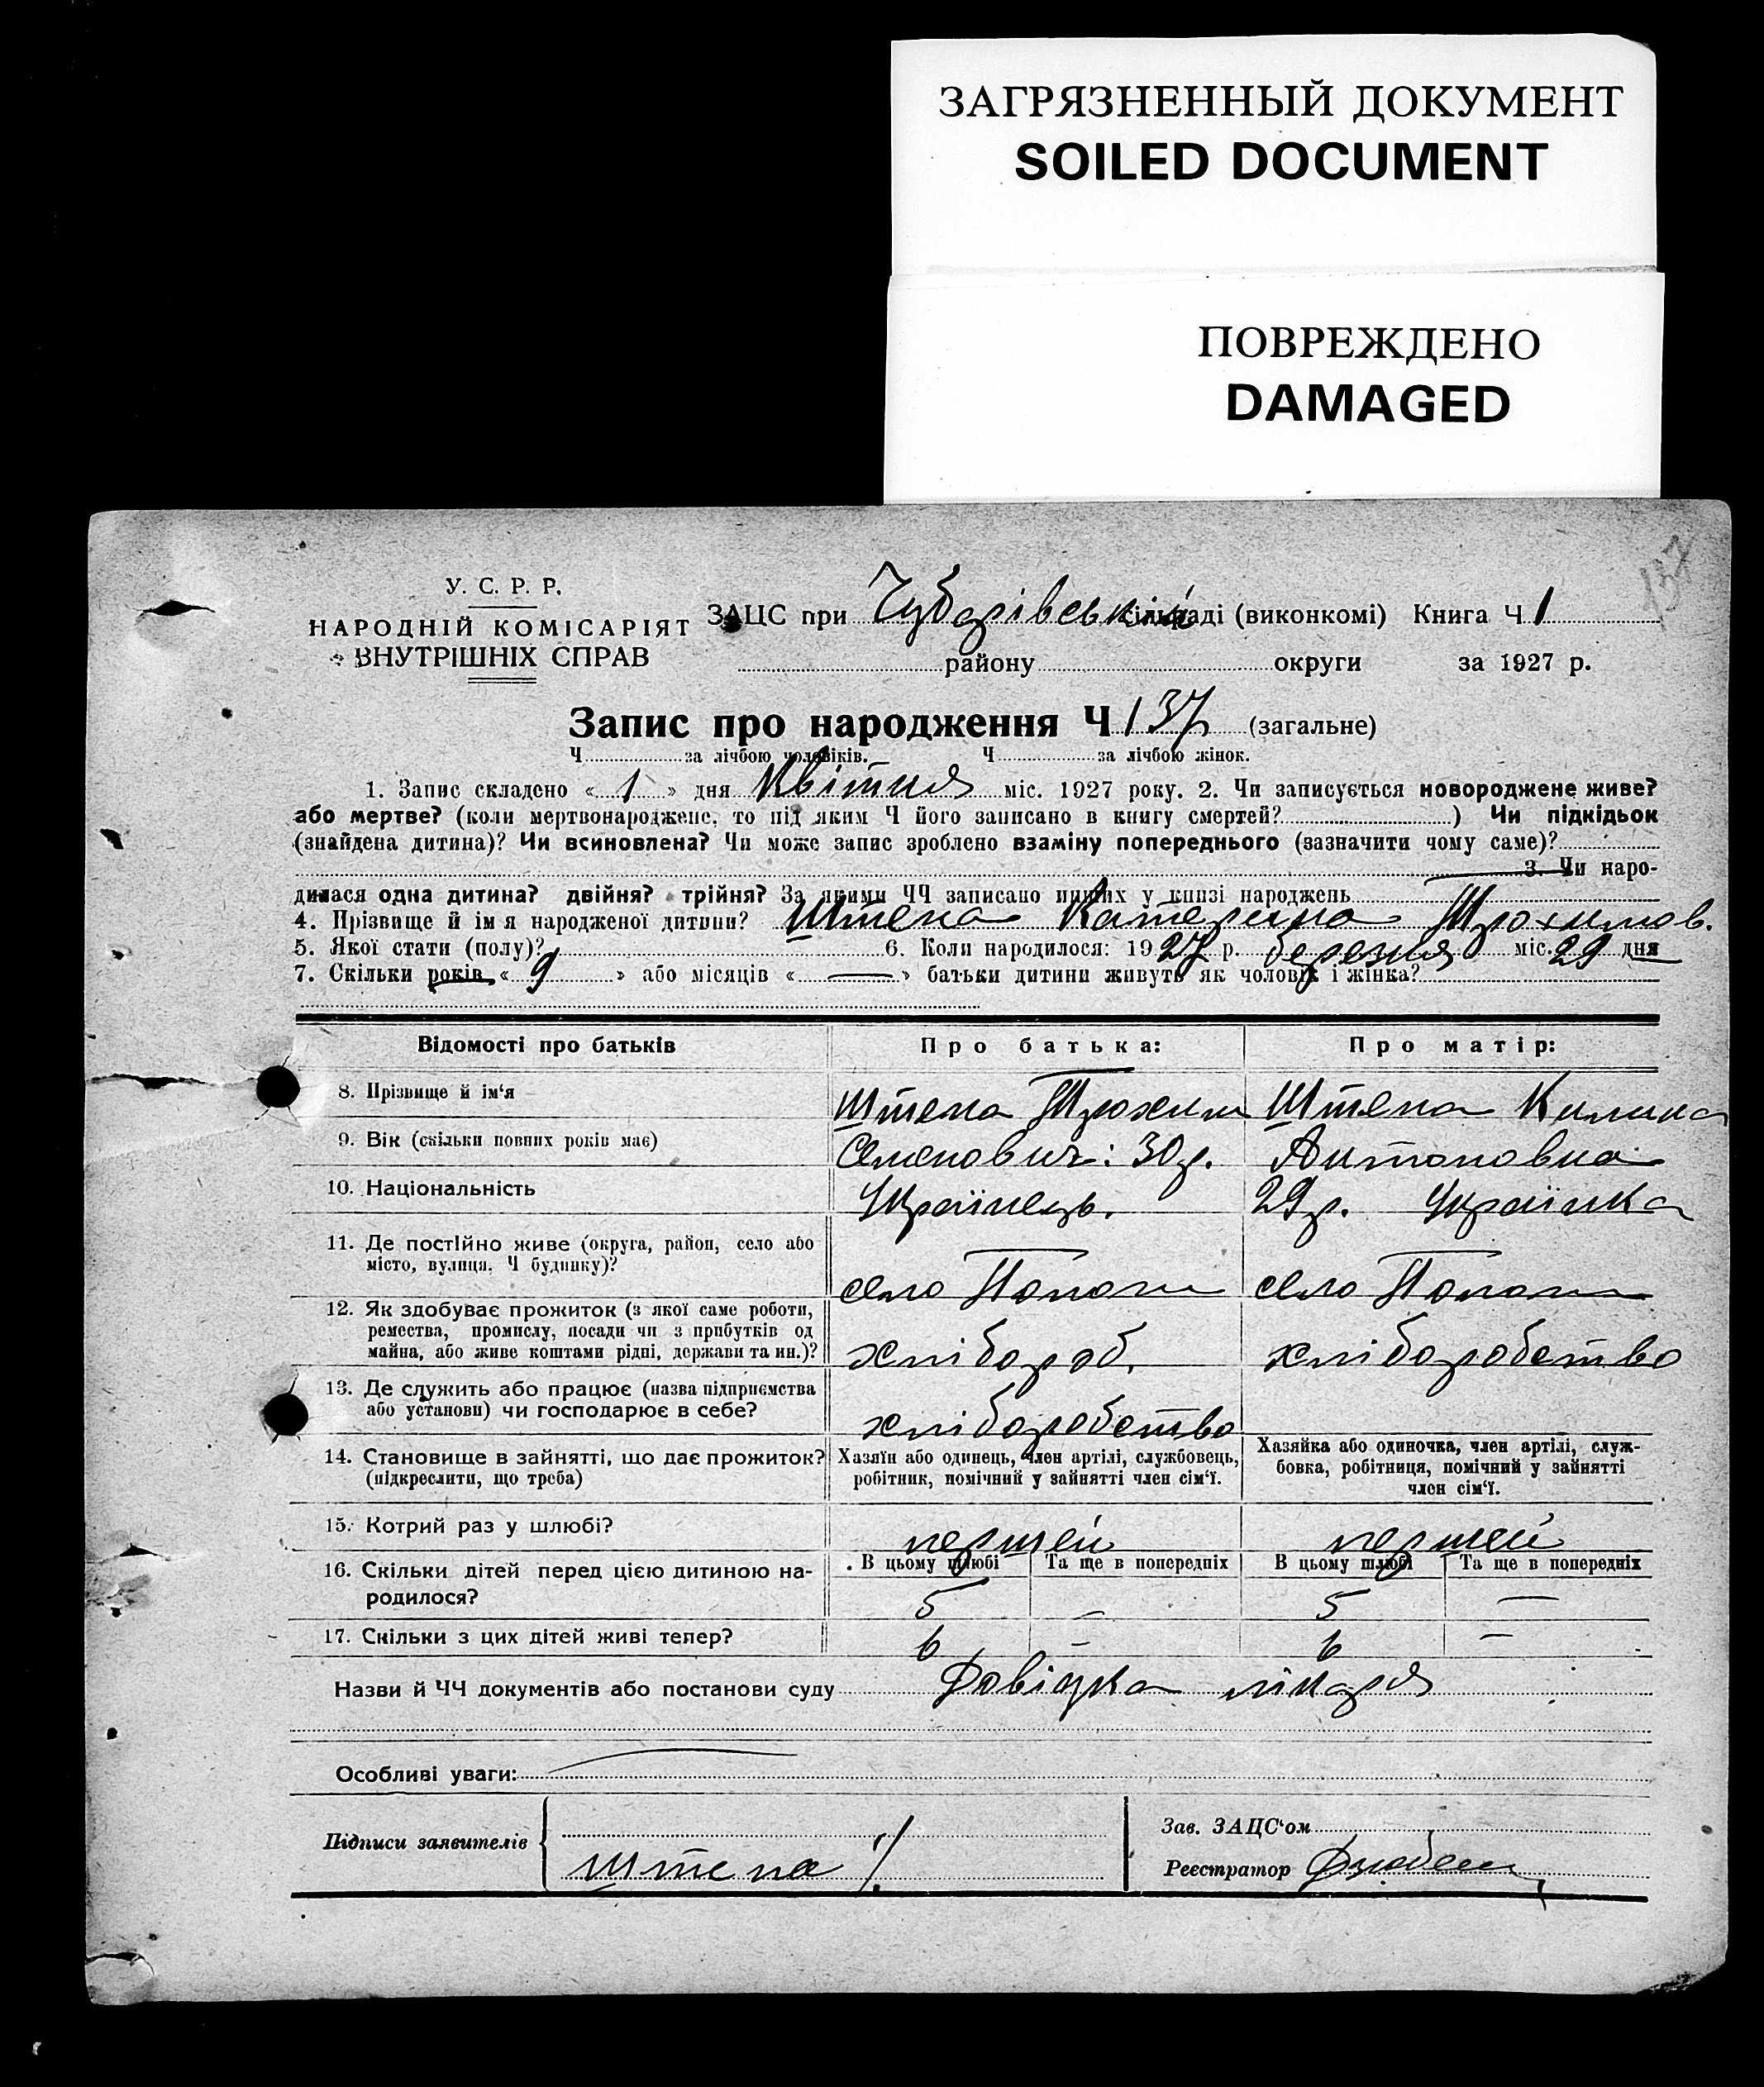 ЗАГРЯЗНЕННЫЙ ДОКУМЕНТ
SOILED DOCUMENT
ПОВРЕЖДЕНО
DAMAGED
137
У. С. Р. Р.
НАРОДНІЙ КОМІСАРІЯТ
ВНУТРІШНІХ СПРАВ
ЗАЦС при Чубарівській сільраді (виконкомі) Книга Ч 1
району округи за 1927 р.
Запис про народження Ч 137 (загальне)
Ч за лічбою чоловіків. Ч за лічбою жінок.
1. Запис складено « 1 » дня Квітня міс. 1927 року. 2. Чи записується новороджене живе?
або мертве? (коли мертвонароджене, то під яким Ч його записано в книгу смертей? ) Чи підкідьок
(знайдена дитина)? Чи всиновлена? Чи може запис зроблено взаміну попереднього (зазначити чому саме)?
3. Чи наро-
дилася одна дитина? двійня? трійня? За якими ЧЧ записано инших у книзі народжень
4. Прізвище й ім'я народженої дитини? Штепа Катерина Трохимов.
5. Якої стати (полу)? 6. Коли народилося: 1927 р. березня міс. 29 дня
7. Скільки років « 9 » або місяців « — » батьки дитини живуть як чоловік і жінка?
Відомості про батьків Про батька: Про матір:
8. Прізвище й ім'я Штепа Трохим Штепа Килина
9. Вік (скільки повних років має) Семенович: 30 р. Антоновна
10. Національність Українець. 29 р. Українка
11. Де постійно живе (округа, район, село або
місто, вулиця, Ч будинку)? село Пологи село Пологи
12. Як здобуває прожиток (з якої саме роботи,
ремества, промислу, посади чи з прибутків од
майна, або живе коштами рідні, держави та ин.)? хлібороб. хліборобство
13. Де служить або працює (назва підприємства
або установи) чи господарює в себе? хліборобство
14. Становище в зайнятті, що дає прожиток? Хазяїн або одинець, член артілі, службовець, Хазяйка або одиночка, член артілі, служ-
(підкреслити, що треба) робітник, помічний у зайнятті член сім'ї. бовка, робітниця, помічний у зайнятті
член сім'ї.
15. Котрий раз у шлюбі? першей першей
16. Скільки дітей перед цією дитиною на- В цьому шлюбі Та ще в попередніх В цьому шлюбі Та ще в попередніх
родилося? 5 — 5 —
17. Скільки з цих дітей живі тепер? 6 — 6 —
Назви й ЧЧ документів або постанови суду Довідка лікаря
Особливі уваги:
Підписи заявителів Штепа
Зав. ЗАЦС'ом
Реєстратор